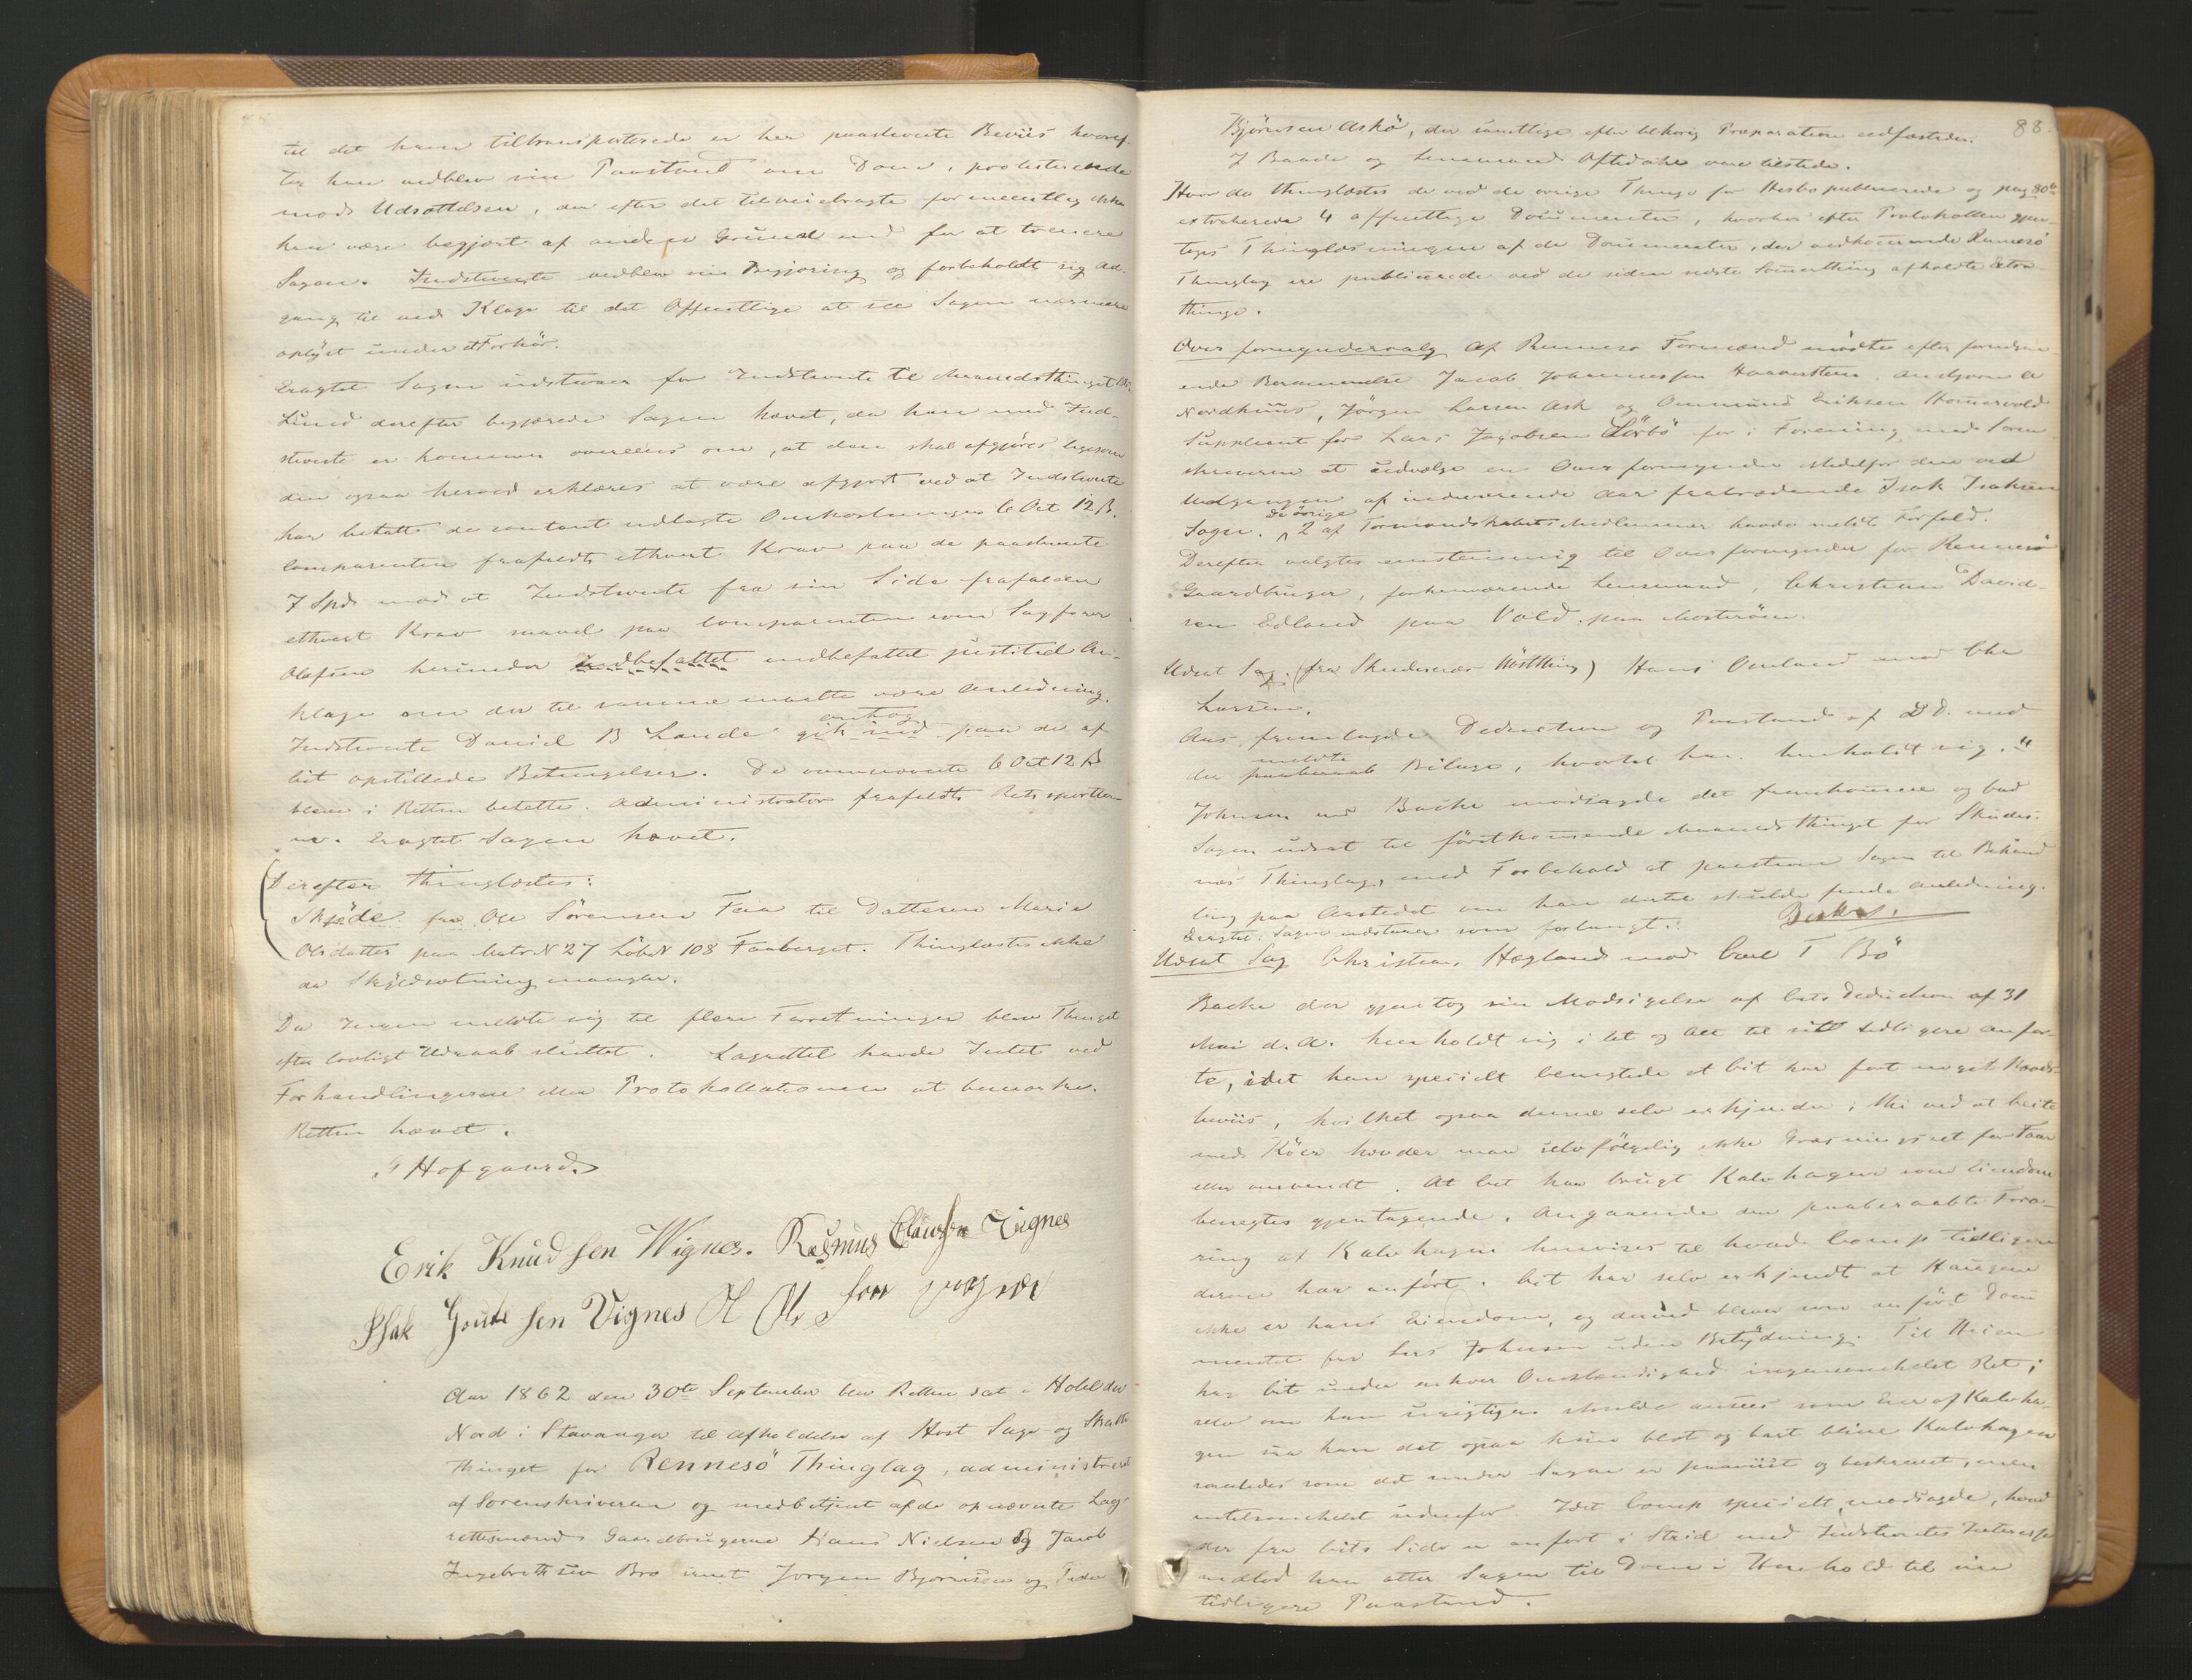 til det ham tiltransporterede er her paastevnte Beviis hvoref-
ter han vedblev sin Paastand om Dom, protesterende
mod Udsættelsen, der efter det Tilveiebragte formeentlig ikke
kan være begjært af anden Grund end for at trænere
Sagen. Indstevnte vedblev sin Begjæring og forbeholdt sig Ad-
gang til ved Klage til det Offentlige at see Sagen nærmere
oplyst under et Forhør.
Eragtet Sagen udstaaer for Indstevnte til Maanedsthinget
Lund derefter begjærede Sagen hævet, da han med Ind-
stevnte er kommen overeens om, at den skal afgjøres ligesom
den ogsaa herved erklæres at være afgjort ved at Indstevnte
har betalt de contant udlagte Omkostninger 6 Ort 12 ß.
Comparenten frafaldt ethvert Krav paa de paastevnte
7 Spd mod at Indstevnte fra sin Side frafalder
ethvert Krav paa Comparenten som Sagfører
Olafsen herunder indbefattet indbefattet justitiel An-
klage om der til samme maatte være Anledning.
Indstevnte Daniel B Lande gik ind antog paa de af
Cit opstillede Betingelser. De ommeldte 6 Ort 12 ß
bleve i Retten betalte. Administrator frafaldt Retssportler-
ne. Eragtet Sagen hævet.
Derefter thinglæstes:
Skjøde fra Ole Sörensen Faa til Datteren Marie
Olsdatter paa Matr N 27 Löb N 108 Faaberget. Thinglæstes ikke
da Skyldsætning mangler.
Da Ingen meldte sig til flere Forretninger blev Thinget
efter lovligt Udraab sluttet. Lagrettet havde Intet ved
Forhandlingerne eller Protokollationen at bemærke.
Retten hævet.
G Hofgaard.
Erik Knudsen Wignes. Rasmus Clausen Vignes
Isak Goutesen Vignes
Aar 1862 den 30te September blev Retten sat i Hotel du
Nord i Stavanger til Afholdelse af Høst Sage og Skatte
thinget for Rennesö Thinglag, administreret
af Sorenskriveren og medbetjent af de opnævnte Lag-
rettesmænd Gaardbrugerne Hans Nielsen og Jacob
Ingebrethsen Bro samt Jørgen Bjørnsen og Peder
88.
Bjørnsen Askö, der samtlige efter behørig Præparation edfæstedes.
J Baade og Lensmand Oftedahl var tilstede.
Hvor da thinglæstes de ved de øvrige Thinge for Hesbø publicerede og pag 80
extraherede 4 offentlige Documenter, hvorhos efter Protokollen gjen-
toges Thinglæsningen af de Documenter, der vedkommende Rennesö
Thinglag ere publicerede ved de siden sidste Sommerthing afholdte Extra-
thinge.
Overformyndervalg Af Rennesø Formænd mødte efter foregaa-
ende Berammelse Jacob Johannesen Haavesteen, Andreas
Nordhuus, Jörgen Larsen Ask og Ommund Eriksen Homersvold
Suppleant for Lars Jacobsen Sörbö for i Forening med Soren-
skriveren at udvælge en Overformynder istedetfor den ved
Udgangen af indeværende Aar fratrædende Isak Isaksen
Sogn. De øvrige 2 af Formandskabets Medlemmer havde meldt Forfald.
Derefter valgtes enstemmig til Overformynder for Rennesø
Gaardbruger, forhenværende Lensmand, Christian David-
sen Edland paa Vold paa Mosterøen.
Udsat Sag. (fra Skudenes Høstthing) Hans Omland mod Chr
Larsen.
Aas fremlagde Deduction og Paastand af DD. med
der meldte paaberaabt Bilage, hvortil han henholdt sig.
Johnsen ved Backe modsagde det fremkomne og bad
Sagen udsat til førstkommende Maanedsthinget for Skudes-
næs Thinglag, med Forbehold at paastaae Sagen til Behand-
ling paa Aastedet om han dertil skulde finde Anledning.
Eragtet: Sagen udstaaer som forlangt.
Udsat Sag Christian Hægland mod Carl T Bö
Backe der gjentog sin Modsigelse af Cits Deduction af 31
Mai d. A. henholdt sig i Et og Alt til sit tidligere Anfør-
te, idet han specielt benegtede at Cit har ført noget Hævds-
beviis, hvilket ogsaa denne selv erkjender; thi ved at beite
med Køer hævder man selvfølgelig ikke Græsningsret for Faar
eller omvendt. At Cit har brugt Kalvhagen som Eiendom
benegtes gjentagende. Angaaende den paaberaabte Foræ-
ring af Kalvhagen henvises til hvad Comp tidligere
derom har anført. Cit har selv erkjendt at Haugene
ikke er hans Eiendom, og dermed bliver som anført Docu-
mentet fra Lars Johnsen uden Betydning. Til Heien
har Cit under enhver Omstændighed ingensomhelst Ret;
selv om han urigtigen skulde ansees som Eier af Kalvha-
gen saa kan det ogsaa kun blot og bart blive Kalvhagen
saaledes som det under Sagen er paaviist og beskrevet, men
intetsomhelst udenfor. Idet Comp specielt modsagde, hvad
der fra Cits Side er anført i Strid med Indstevntes Interesse
indlod han atter Sagen til Dom i Henhold til sin
tidligere Paastand.